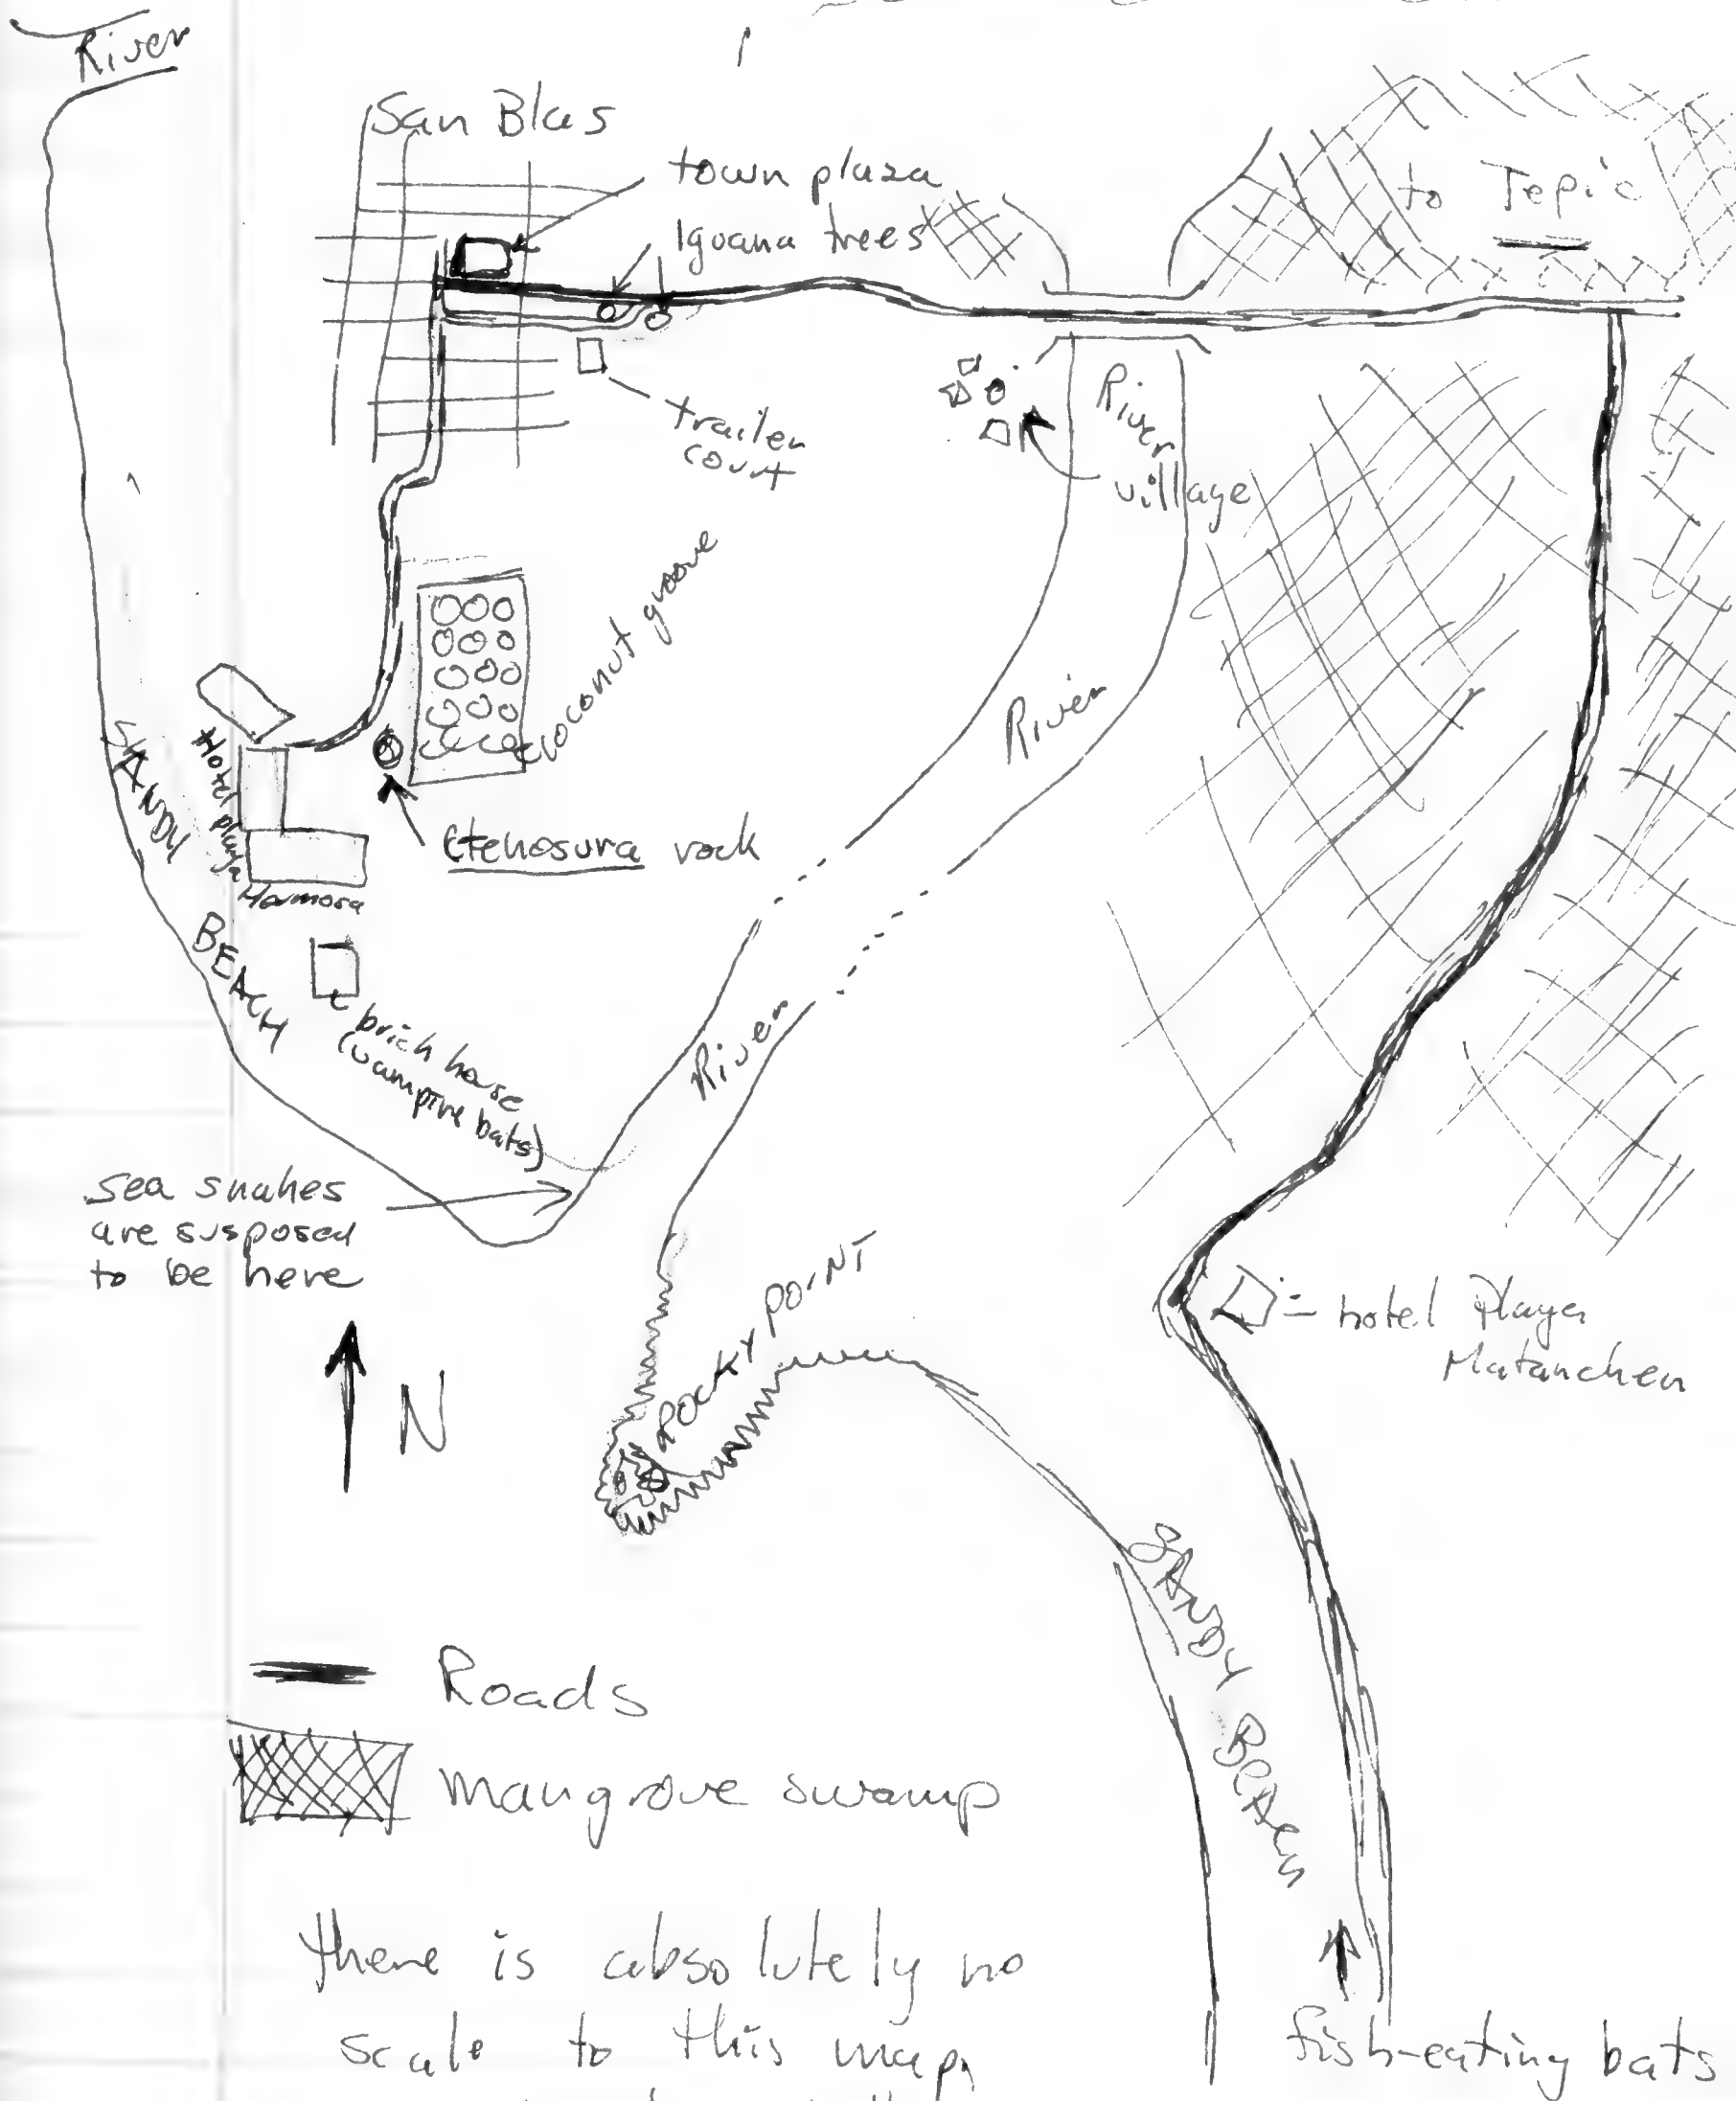 River
San Blas
town plaza
Iguana trees
to Tepic
trailer
court
River
village
coconut groove
River
Hotel playa
Hamosa
SANDY
BEACH
Ctenosura rock
brick house
(vampire bats)
River
sea snakes
are susposed
to be here
N
ROCKY POINT
hotel Playa
Matanchen
SANDY BEACH
Roads
mangrove swamp
there is absolutely no
scale to this map,
fish-eating bats